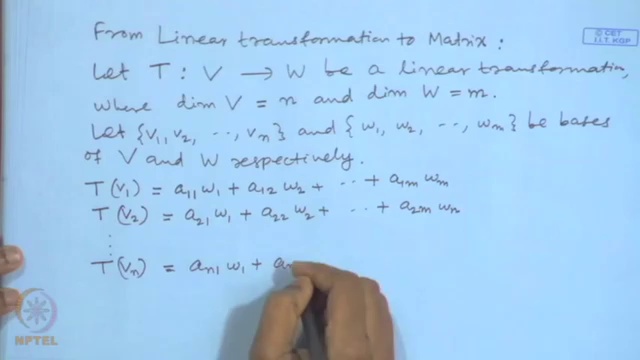 © CET
I.I.T. KGP
From Linear transformation to Matrix :
Let T : V → W be a linear transformation,
where dim V = n and dim W = m.
Let {v₁, v₂, ··, vₙ} and {w₁, w₂, ··, wₘ} be bases
of V and W respectively.
T(v₁) = a₁₁ w₁ + a₁₂ w₂ + ·· + a₁ₘ wₘ
T(v₂) = a₂₁ w₁ + a₂₂ w₂ + ·· + a₂ₘ wₙ
⋮
T(vₙ) = aₙ₁ w₁ + aₙ
NPTEL